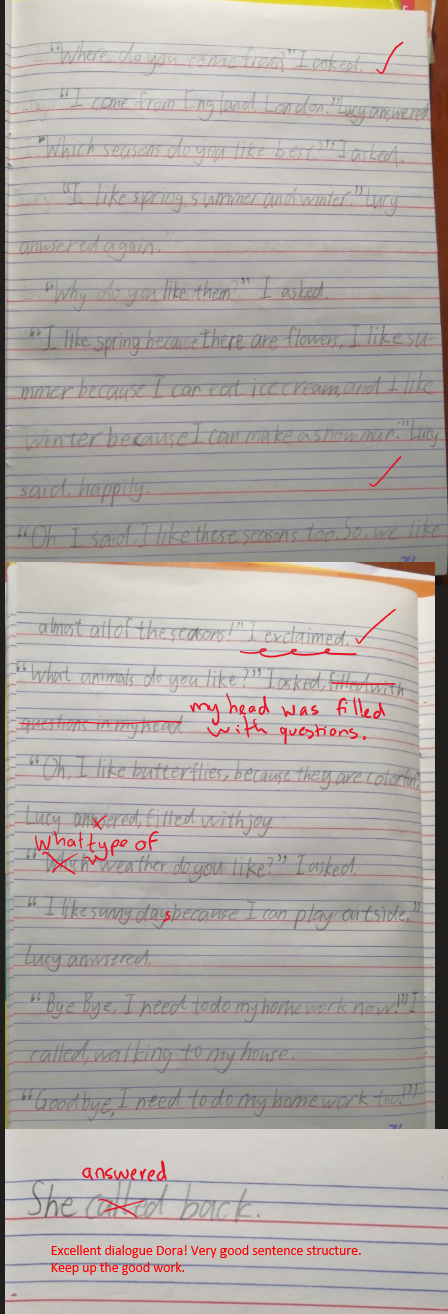 "Where do you come from?" I asked.
"I come from England, London." Lucy answered
"Which seasons do you like best?" I asked.
"I like spring, summer and winter." Lucy
anwsered again.
"Why do you like them?" I asked.
"I like spring because there are flowers, I like su-
mmer because I can eat ice cream, and I like
winter because I can make a snow man." Lucy
said, happily.
"Oh I said, I like these seasons, too. So, we like
almost all of the seasons!" I exclaimed.
"What animals do you like?" I asked, filled with
questions in my head my head was filled
with questions.
"Oh, I like butterflies, because they are colorful,"
Lucy anwsered, filled with joy.
What type of
"Which weather do you like?" I asked
"I like sunny days because I can play outside."
Lucy anwsered.
"Bye Bye, I need to do my home work now!" I
called, walking to my house.
"Goodbye, I need to do my home work too!"
answered
She called back.
Excellent dialogue Dora! Very good sentence structure.
Keep up the good work.